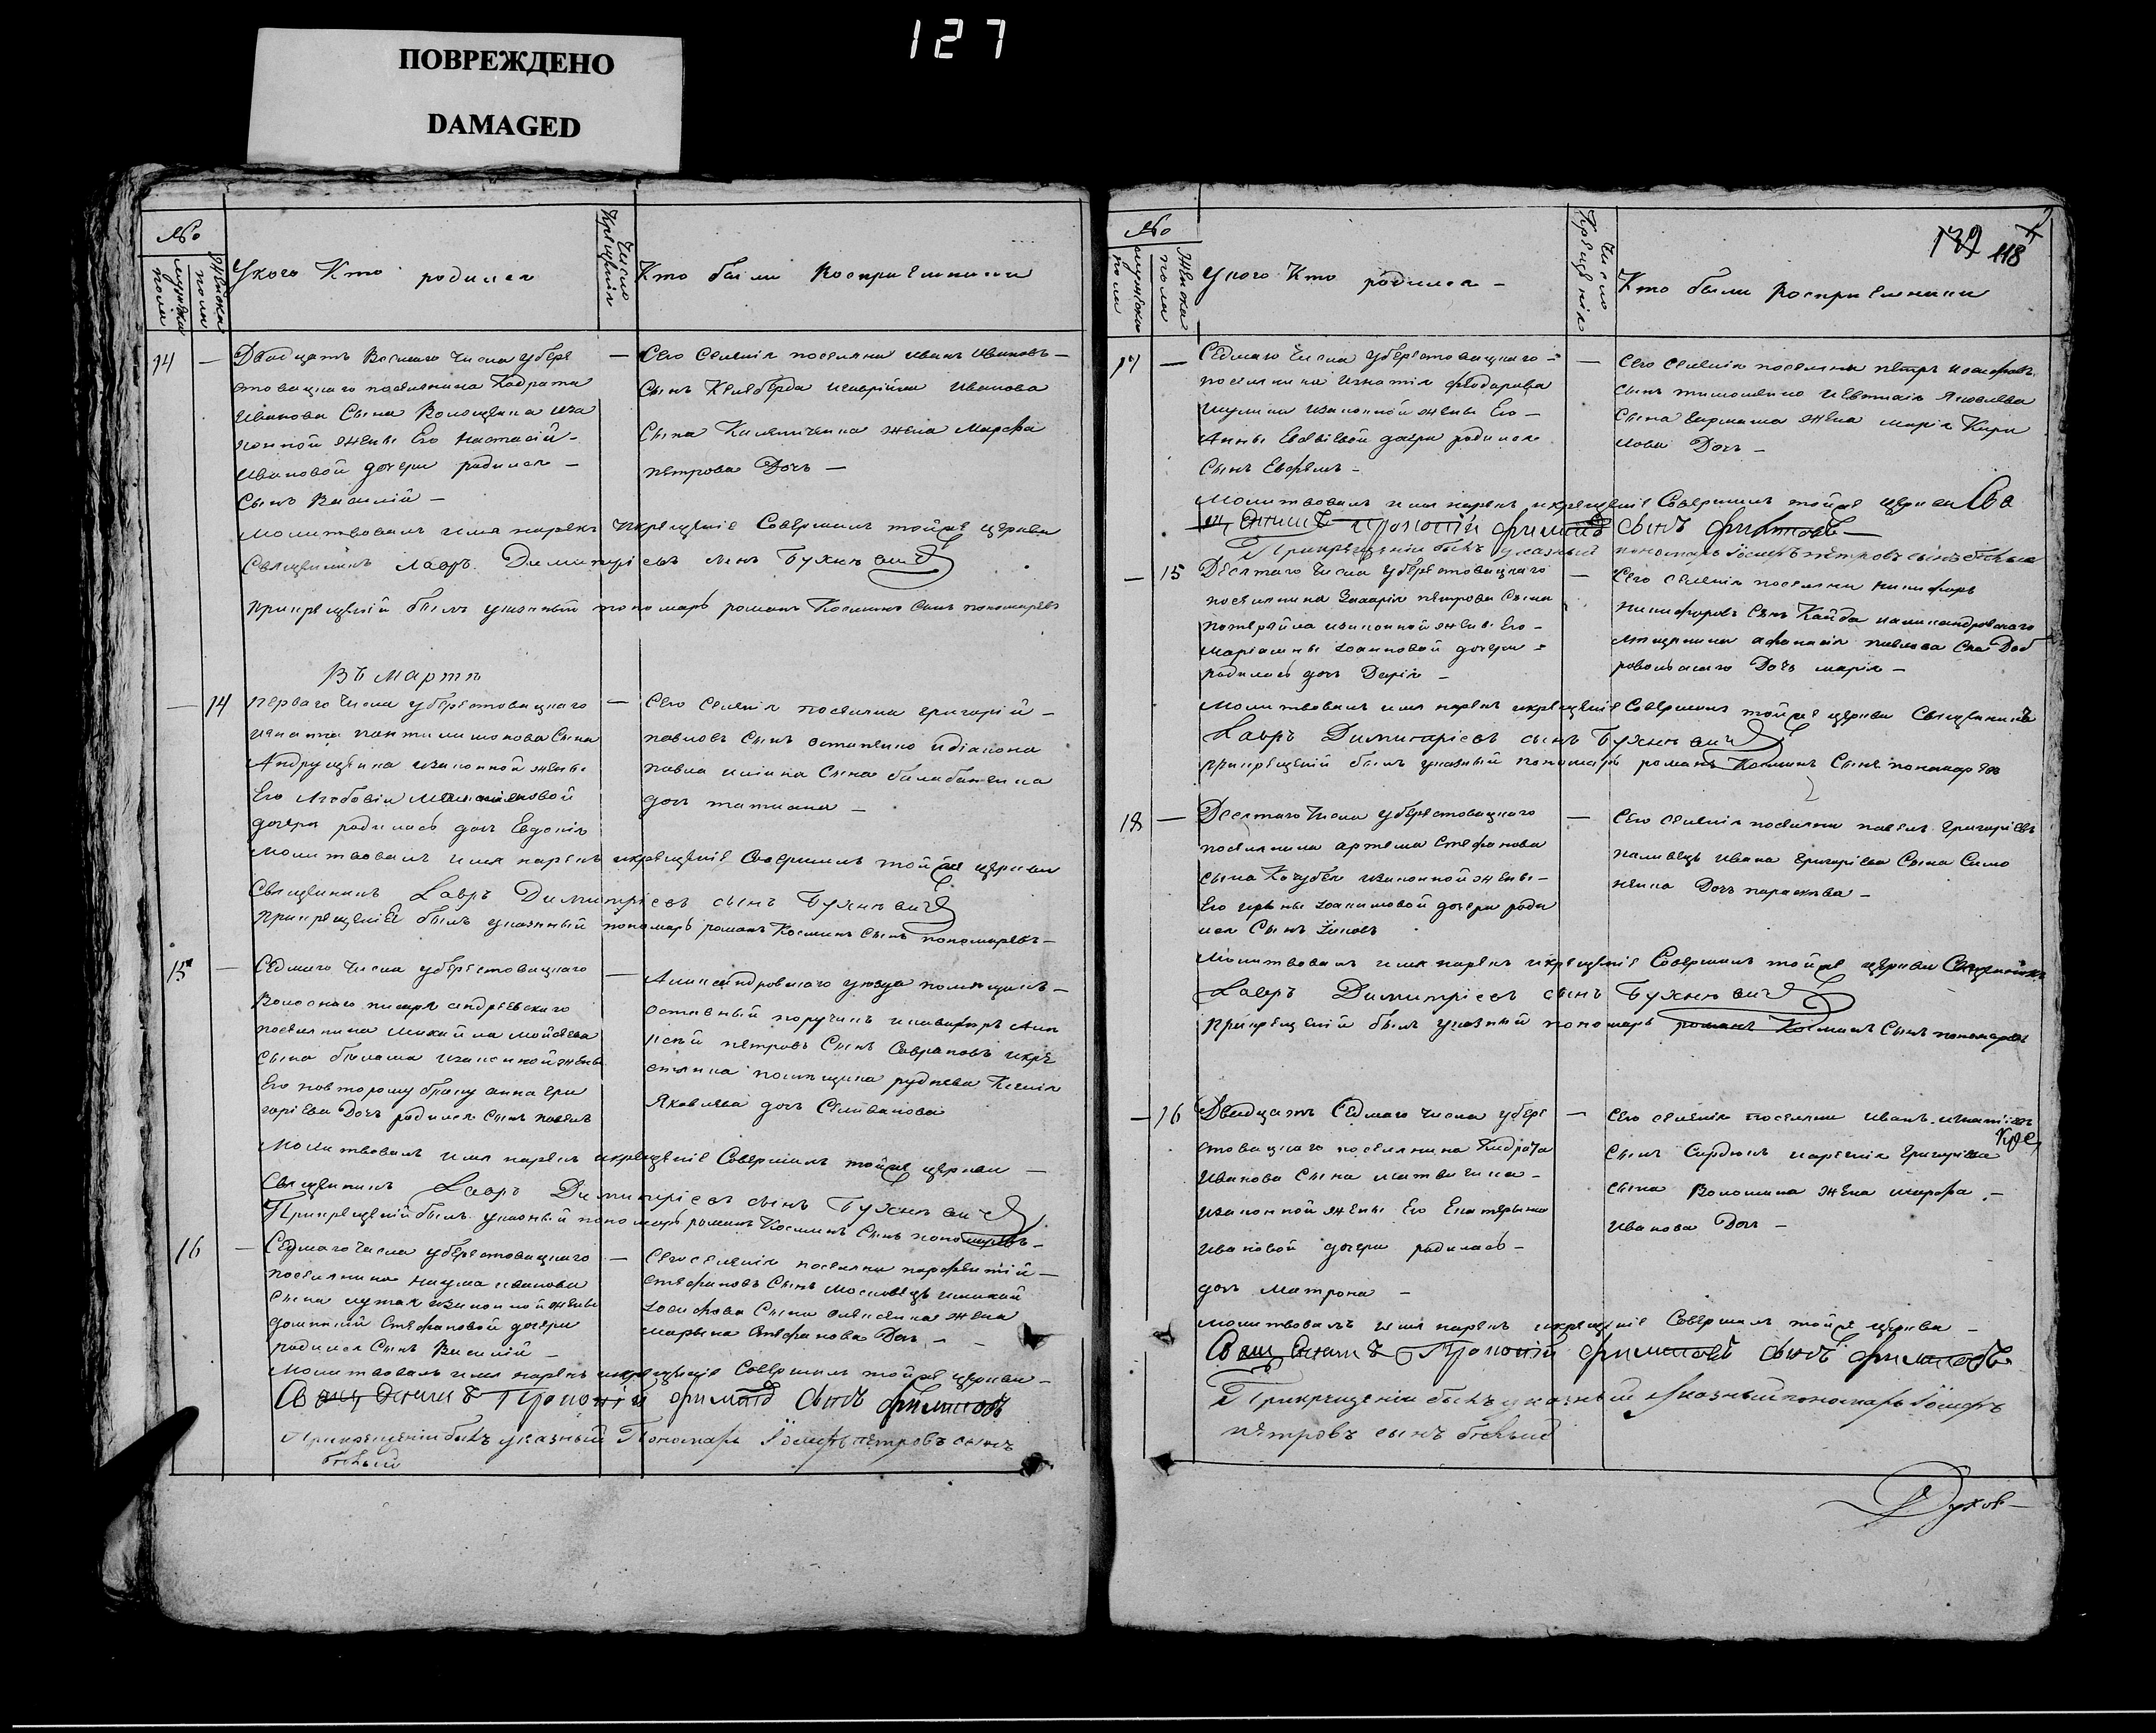 127
ПОВРЕЖДЕНО
DAMAGED
№
мужска пола
женска пола
У кого Кто родился
Число Крещенія
Кто были Восприемники
14 — Двадцать Восмаго Числа убере
стовацкаго поселянина Кодрата
Иванова Сына Волощенка иза
конной жены Его Настасіи
Ивановой дочери родился —
Сынъ Василій —
— Сего Селенія поселяне Иванъ Ивановъ —
Сынъ Иванова
Сына жена Марфа
петрова Дочь —
молитвовалъ имя нарекъ икрещеніе Совершилъ тойже церкви
Священникъ Лавръ Димитріевъ сынъ Бухневичъ
прикрещеніи былъ указный пономарь романъ Косминъ Сынъ пономаревъ
Въ Марте
— 14 перваго Числа уберестовацкаго
игната пантилимонова Сына
Андрущенка изаконной жены
Его Любовіи
дочери родилась дочь Евдокія
— Сего Селенія поселяне григорій —
павловъ Сынъ остапенко идіакона
павла Сына балабаненка
дочь татиана —
молитвовалъ имя нарекъ икрещеніе Совершилъ тойже церкви
Священникъ Лавръ Димитріевъ сынъ Бухневичъ
прикрещеніи былъ указный пономарь романъ Косминъ Сынъ пономаревъ —
15 — Седмаго Числа уберестовацкаго
Волоснаго писаря андреевскаго
поселянина михайла мойсеева
сына изаконной жены
Его повторому браку анна гри
горіева Дочь родился Сынъ павелъ
— Александровскаго уезда помещикъ —
оставный поручикъ икавалеръ Але
ксей петровъ Сынъ Савраповъ икре
стьянка помещика руднева Ксенія
Яковлева дочь Селиванова
молитвовалъ имя нарекъ икрещеніе Совершилъ тойже церкви —
Священникъ Лавръ Димитріевъ сынъ Бухневичъ
Прикрещеніи былъ указный пономарь романъ Косминъ Сынъ пономаревъ —
16 — Седмаго Числа уберестовацкаго
поселянина наума иванова
Сына изаконной жены
домникіи Стефановой дочери
родился Сынъ Василій —
— Сего селенія поселяне парфентій —
стефановъ Сынъ Московецъ
іосифова Сына алексенка жена
марына Стефанова Дочь —
молитвовалъ имя нарекъ икрещеніе Совершилъ тойже церкви —
Священникъ Прокопій филиповъ сынъ филиповъ
Прикрещеніи былъ указный Пономарь Іосифъ петровъ сынъ
белый
132 118
№
мужска пола
женска пола
У кого Кто родился —
Число Крещенія
Кто были Восприемники
17 — Седмаго Числа уберестовацкаго —
поселянина игнатія феодорова
изаконной жены Его —
Анны дочери родился
Сынъ Евфемъ —
— Сего Селенія поселяне петръ иосифовъ
сынъ тимошенко иевтихія Яковлева
Сына жена марія Кири
лова Дочь —
молитвовалъ имя нарекъ икрещеніе Совершилъ тойже церкви Свя
щенникъ прокопій филиповъ сынъ филиповъ —
Прикрещеніи былъ указный пономарь Іосифъ петровъ сынъ белый
— 15 Десятаго Числа уберестовацкаго
поселянина Захарія петрова Сына
изаконной жены Его —
маріамны іоанновой дочери
родилась дочь Дарія —
— Сего селенія поселяне никифоръ
никифоровъ Сынъ Кайда иалександровскаго
мещанина афанасія павлова Сна Доб
ровольскаго Дочь марія —
молитвовалъ имя нарекъ икрещеніе Совершилъ тойже церкви Священникъ
Лавръ Димитріевъ сынъ Бухневичъ
прикрещеніи былъ указный пономарь романъ Косминъ Сынъ пономаревъ
18 — Десятаго Числа уберестовацкаго
поселянина артема Стефанова
сына Кочубея изаконной жены —
Его ирыны іоакимовой дочери роди
лся Сынъ Іаковъ
— Сего селенія поселяне павелъ григоріевъ
паливецъ ивана григоріева Сына Симо
ненка Дочь параскева —
молитвовалъ имя нарекъ икрещеніе Совершилъ тойже церкви Священникъ
Лавръ Димитріевъ сынъ Бухневичъ
прикрещеніи былъ указный пономарь романъ Косминъ Сынъ пономаревъ
— 16 Двадцать Седмаго Числа убере
стовацкаго поселянина Кидрата
Иванова Сына матвеенка —
изаконной жены Его Екатерыны
ивановой дочери родилась —
дочь Матрона —
— Сего селенія поселяне иванъ игнатіевъ
Сынъ Сердюкъ григоріева
сына Волошина жена марфа —
иванова Дочь —
молитвовалъ имя нарекъ икрещеніе Совершилъ тойже церкви —
Священникъ Прокопій филиповъ сынъ филиповъ
Прикрещеніи былъ указный указный пономарь Іосифъ
петровъ сынъ белый
Духов—